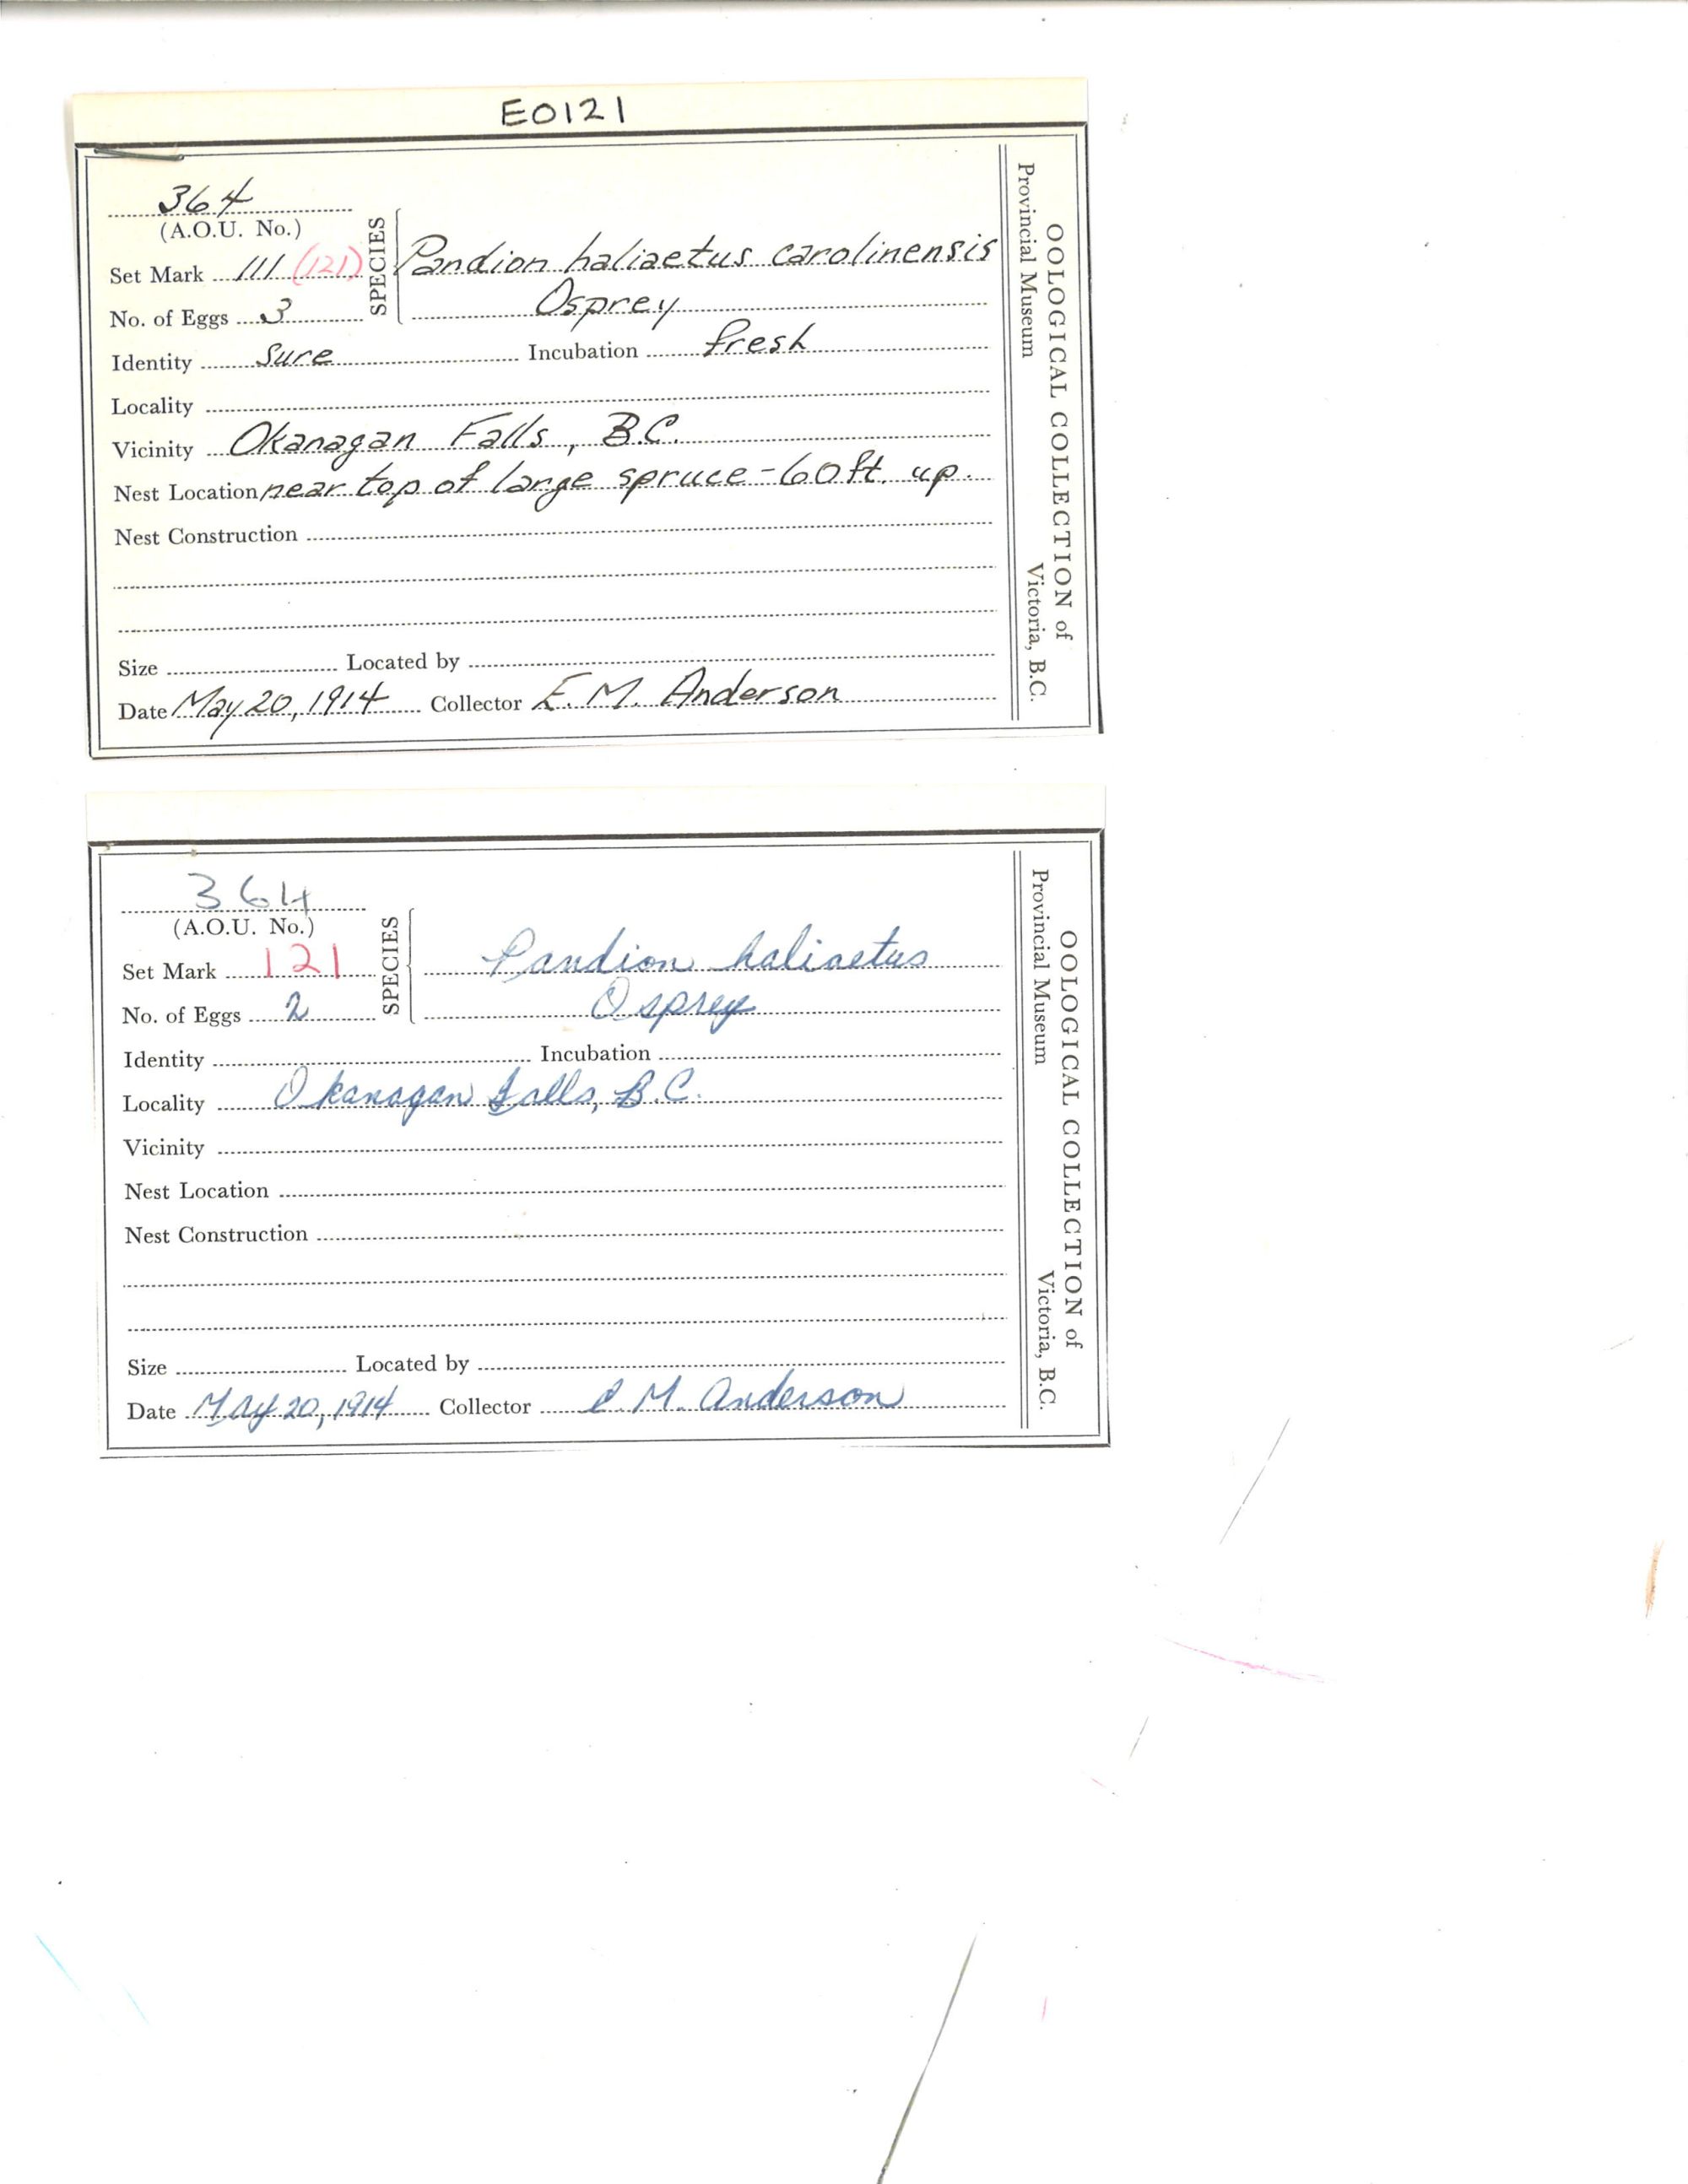 E0121
364
(A.O.U. No.)
Set Mark 111 (121)
No. of Eggs 3
SPECIES
Pandion haliaetus carolinensis
Osprey
Identity Sure Incubation fresh
Locality
Vicinity Okanagan Falls, B.C.
Nest Location near top of large spruce - 60 ft. up.
Nest Construction
Size Located by
Date May 20, 1914 Collector E. M. Anderson
OOLOGICAL COLLECTION of
Provincial Museum Victoria, B.C.
364
(A.O.U. No.)
Set Mark 121
No. of Eggs 2
SPECIES
Pandion haliaetus
Osprey
Identity Incubation
Locality Okanagan Falls, B.C.
Vicinity
Nest Location
Nest Construction
Size Located by
Date May 20, 1914 Collector E. M. Anderson
OOLOGICAL COLLECTION of
Provincial Museum Victoria, B.C.